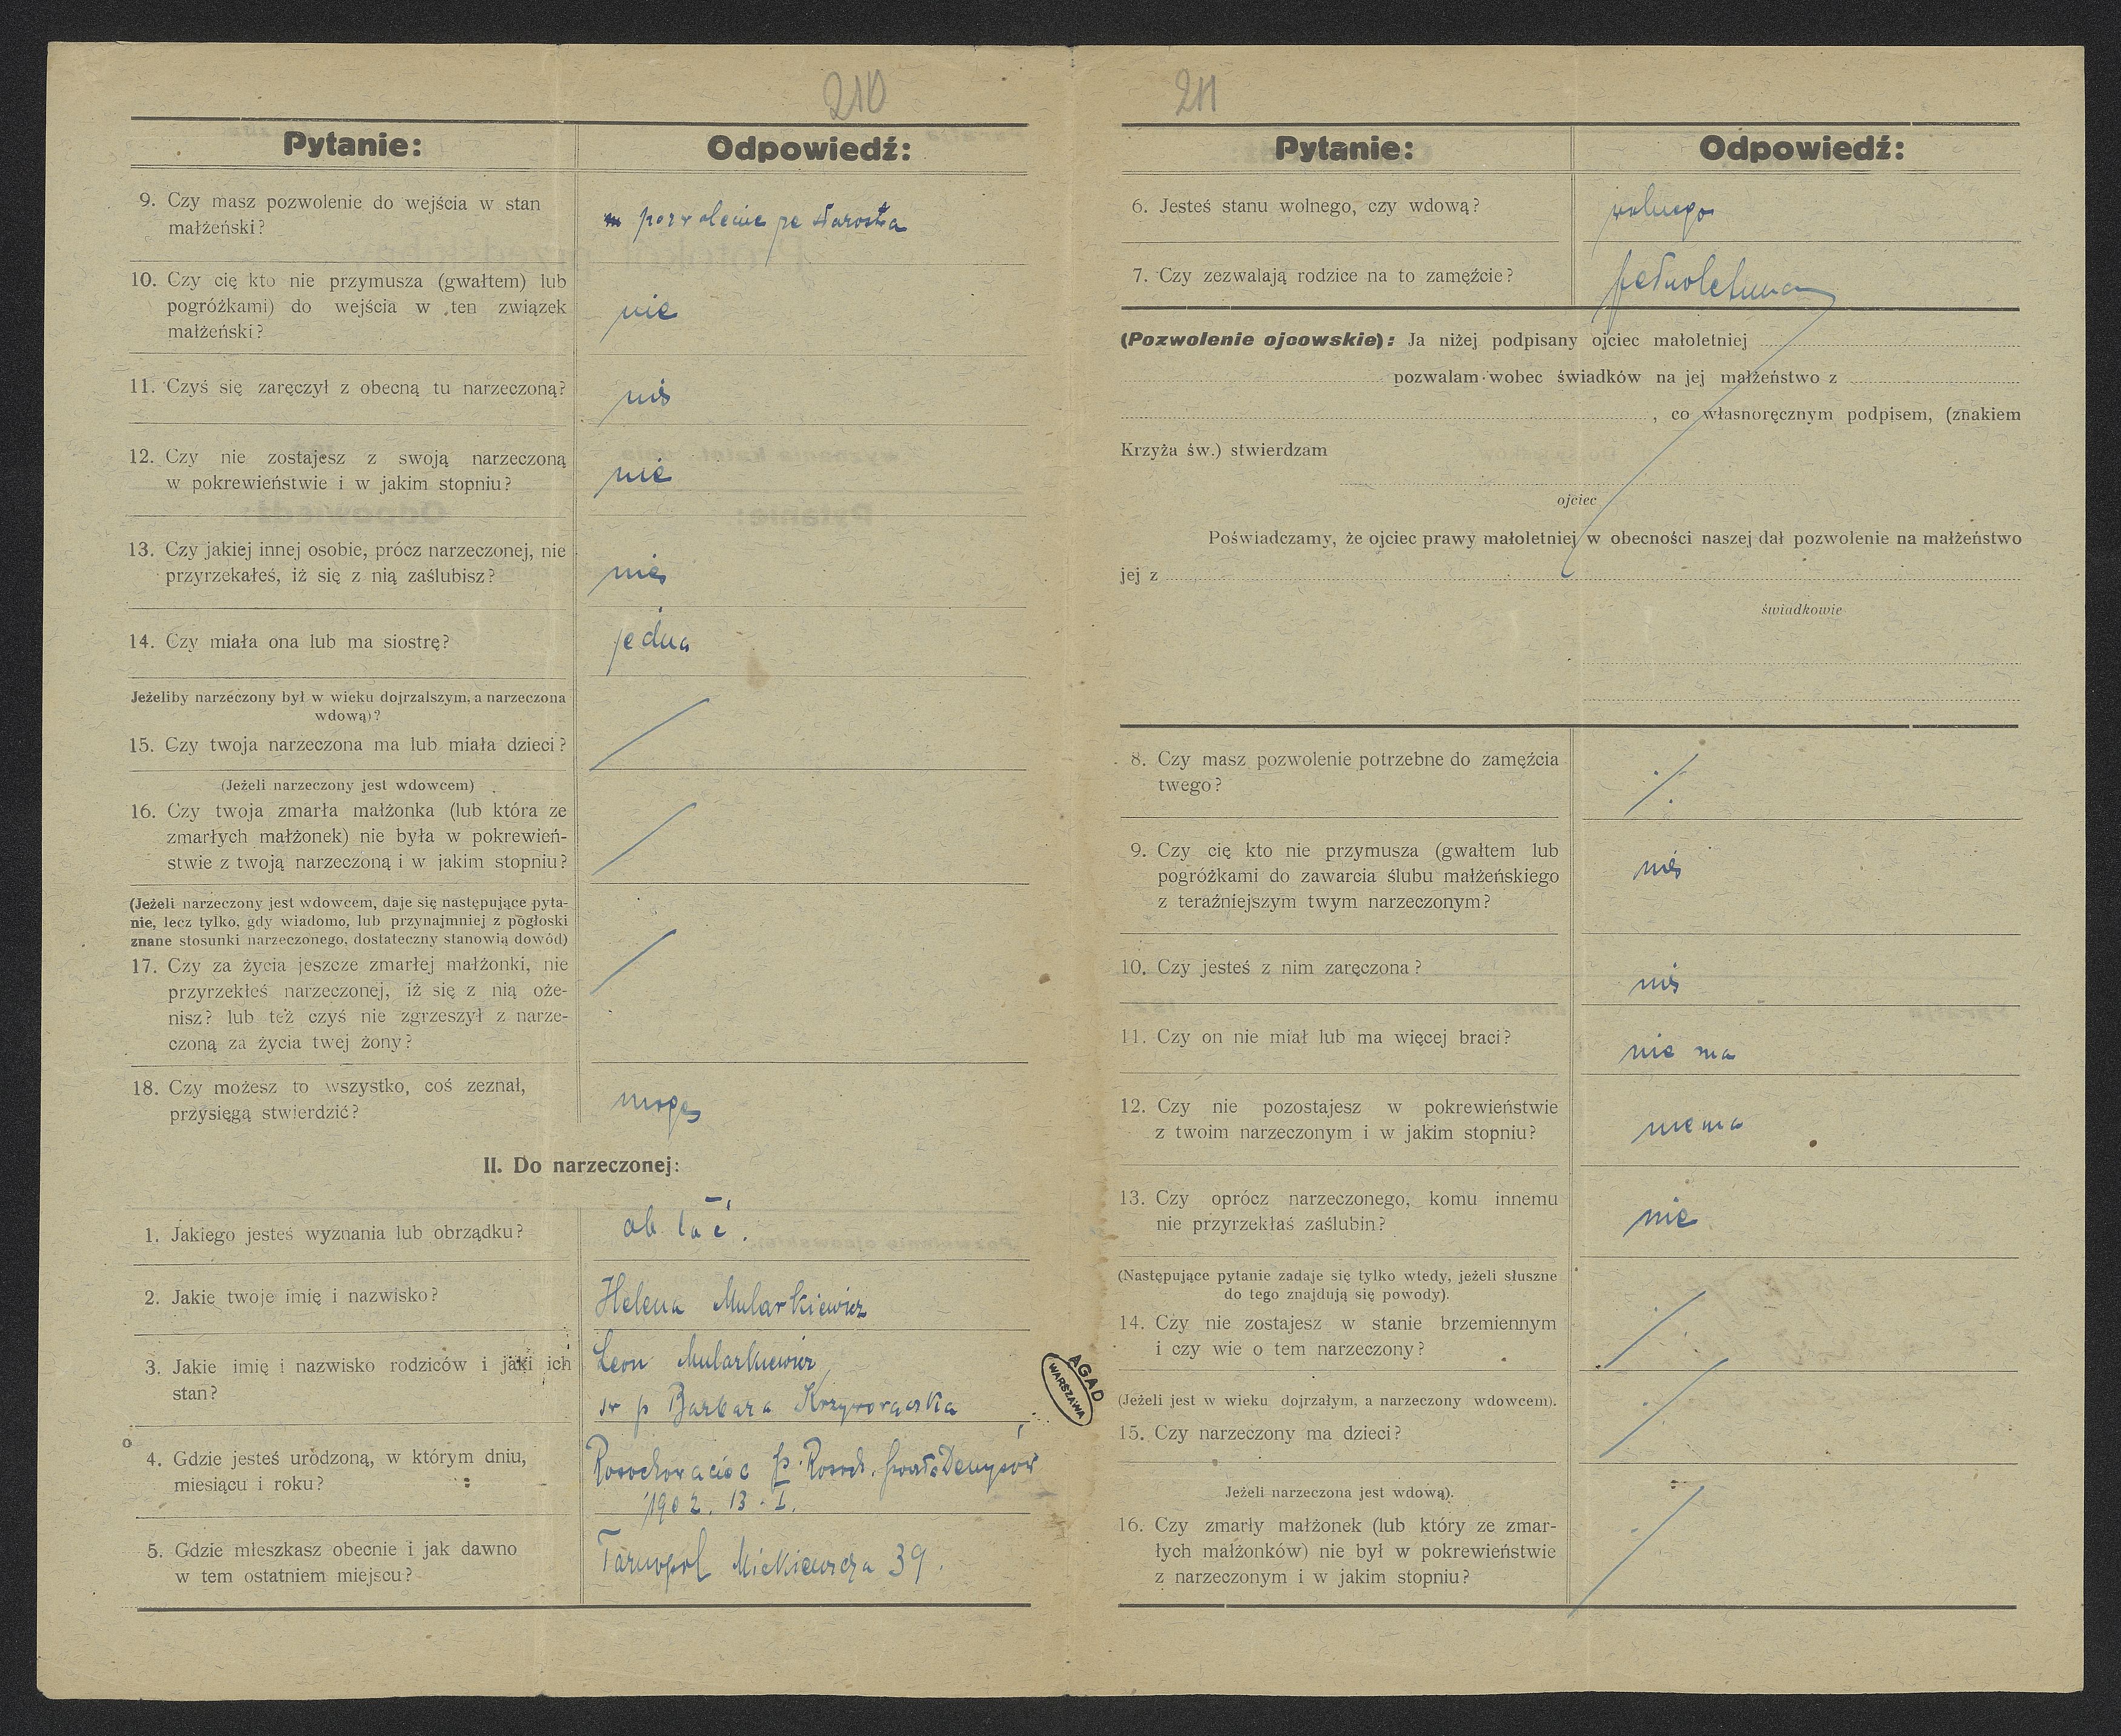 210
Pytanie:
Odpowiedź:
9. Czy masz pozwolenie do wejścia w stan
małżeński?
pozwolenie ze starostwa
10. Czy cię kto nie przymusza (gwałtem) lub
pogróżkami) do wejścia w ten związek
małżeński?
nie
11. Czyś się zaręczył z obecną tu narzeczoną?
nie
12. Czy nie zostajesz z swoją narzeczoną
w pokrewieństwie i w jakim stopniu?
nie
13. Czy jakiej innej osobie, prócz narzeczonej, nie
przyrzekałeś, iż się z nią zaślubisz?
nie
14. Czy miała ona lub ma siostrę?
jedna
Jeżeliby narzeczony był w wieku dojrzalszym, a narzeczona
wdową)?
15. Czy twoja narzeczona ma lub miała dzieci?
(Jeżeli narzeczony jest wdowcem)
16. Czy twoja zmarła małżonka (lub która ze
zmarłych małżonek) nie była w pokrewień-
stwie z twoją narzeczoną i w jakim stopniu?
(Jeżeli narzeczony jest wdowcem, daje się następujące pyta-
nie, lecz tylko, gdy wiadomo, lub przynajmniej z pogłoski
znane stosunki narzeczonego, dostateczny stanowią dowód)
17. Czy za życia jeszcze zmarłej małżonki, nie
przyrzekłeś narzeczonej, iż się z nią oże-
nisz? lub też czyś nie zgrzeszył z narze-
czoną za życia twej żony?
18. Czy możesz to wszystko, coś zeznał,
przysięgą stwierdzić?
mogę
II. Do narzeczonej:
1. Jakiego jesteś wyznania lub obrządku?
ob. łać.
2. Jakie twoje imię i nazwisko?
Helena Mularkiewicz
3. Jakie imię i nazwisko rodziców i jaki ich
stan?
Leon Mularkiewicz
Barbara
4. Gdzie jesteś urodzoną, w którym dniu,
miesiącu i roku?
Rosochowaciec p. Rosoch.
1902. 13. I.
5. Gdzie mieszkasz obecnie i jak dawno
w tem ostatniem miejscu?
Tarnopol Mickiewicza 39.
AGAD
WARSZAWA
211
Pytanie:
Odpowiedź:
6. Jesteś stanu wolnego, czy wdową?
wolnego
7. Czy zezwalają rodzice na to zamęźcie?
pełnoletnia
(Pozwolenie ojcowskie): Ja niżej podpisany ojciec małoletniej
pozwalam wobec świadków na jej małżeństwo z
, co własnoręcznym podpisem, (znakiem
Krzyża św.) stwierdzam
ojciec
Poświadczamy, że ojciec prawy małoletniej w obecności naszej dał pozwolenie na małżeństwo
jej z
świadkowie
8. Czy masz pozwolenie potrzebne do zamęźcia
twego?
9. Czy cię kto nie przymusza (gwałtem lub
pogróżkami do zawarcia ślubu małżeńskiego
z teraźniejszym twym narzeczonym?
nie
10. Czy jesteś z nim zaręczona?
nie
11. Czy on nie miał lub ma więcej braci?
nie ma
12. Czy nie pozostajesz w pokrewieństwie
z twoim narzeczonym i w jakim stopniu?
niema
13. Czy oprócz narzeczonego, komu innemu
nie przyrzekłaś zaślubin?
nie
(Następujące pytanie zadaje się tylko wtedy, jeżeli słuszne
do tego znajdują się powody).
14. Czy nie zostajesz w stanie brzemiennym
i czy wie o tem narzeczony?
(Jeżeli jest w wieku dojrzałym, a narzeczony wdowcem).
15. Czy narzeczony ma dzieci?
Jeżeli narzeczona jest wdową).
16. Czy zmarły małżonek (lub który ze zmar-
łych małżonków) nie był w pokrewieństwie
z narzeczonym i w jakim stopniu?